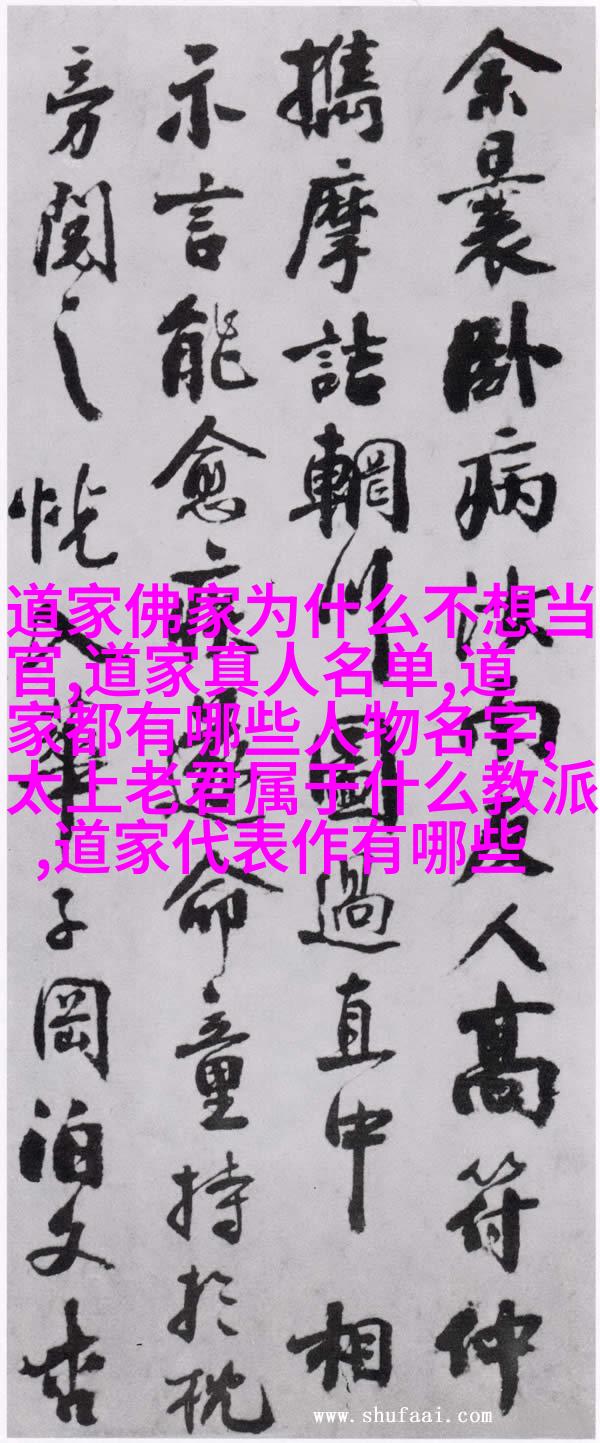 余曩卧病汝南友人高符仲
攜摩詰輞川圖過直中相
示言能愈疾遂命童持於枕
旁閱之恍入華子岡泊文杏
道家佛家为什么不想当
官,道家真人名单,道
家都有哪些人物名字,
太上老君属于什么教派
,道家代表作有哪些
www.shufaai.com